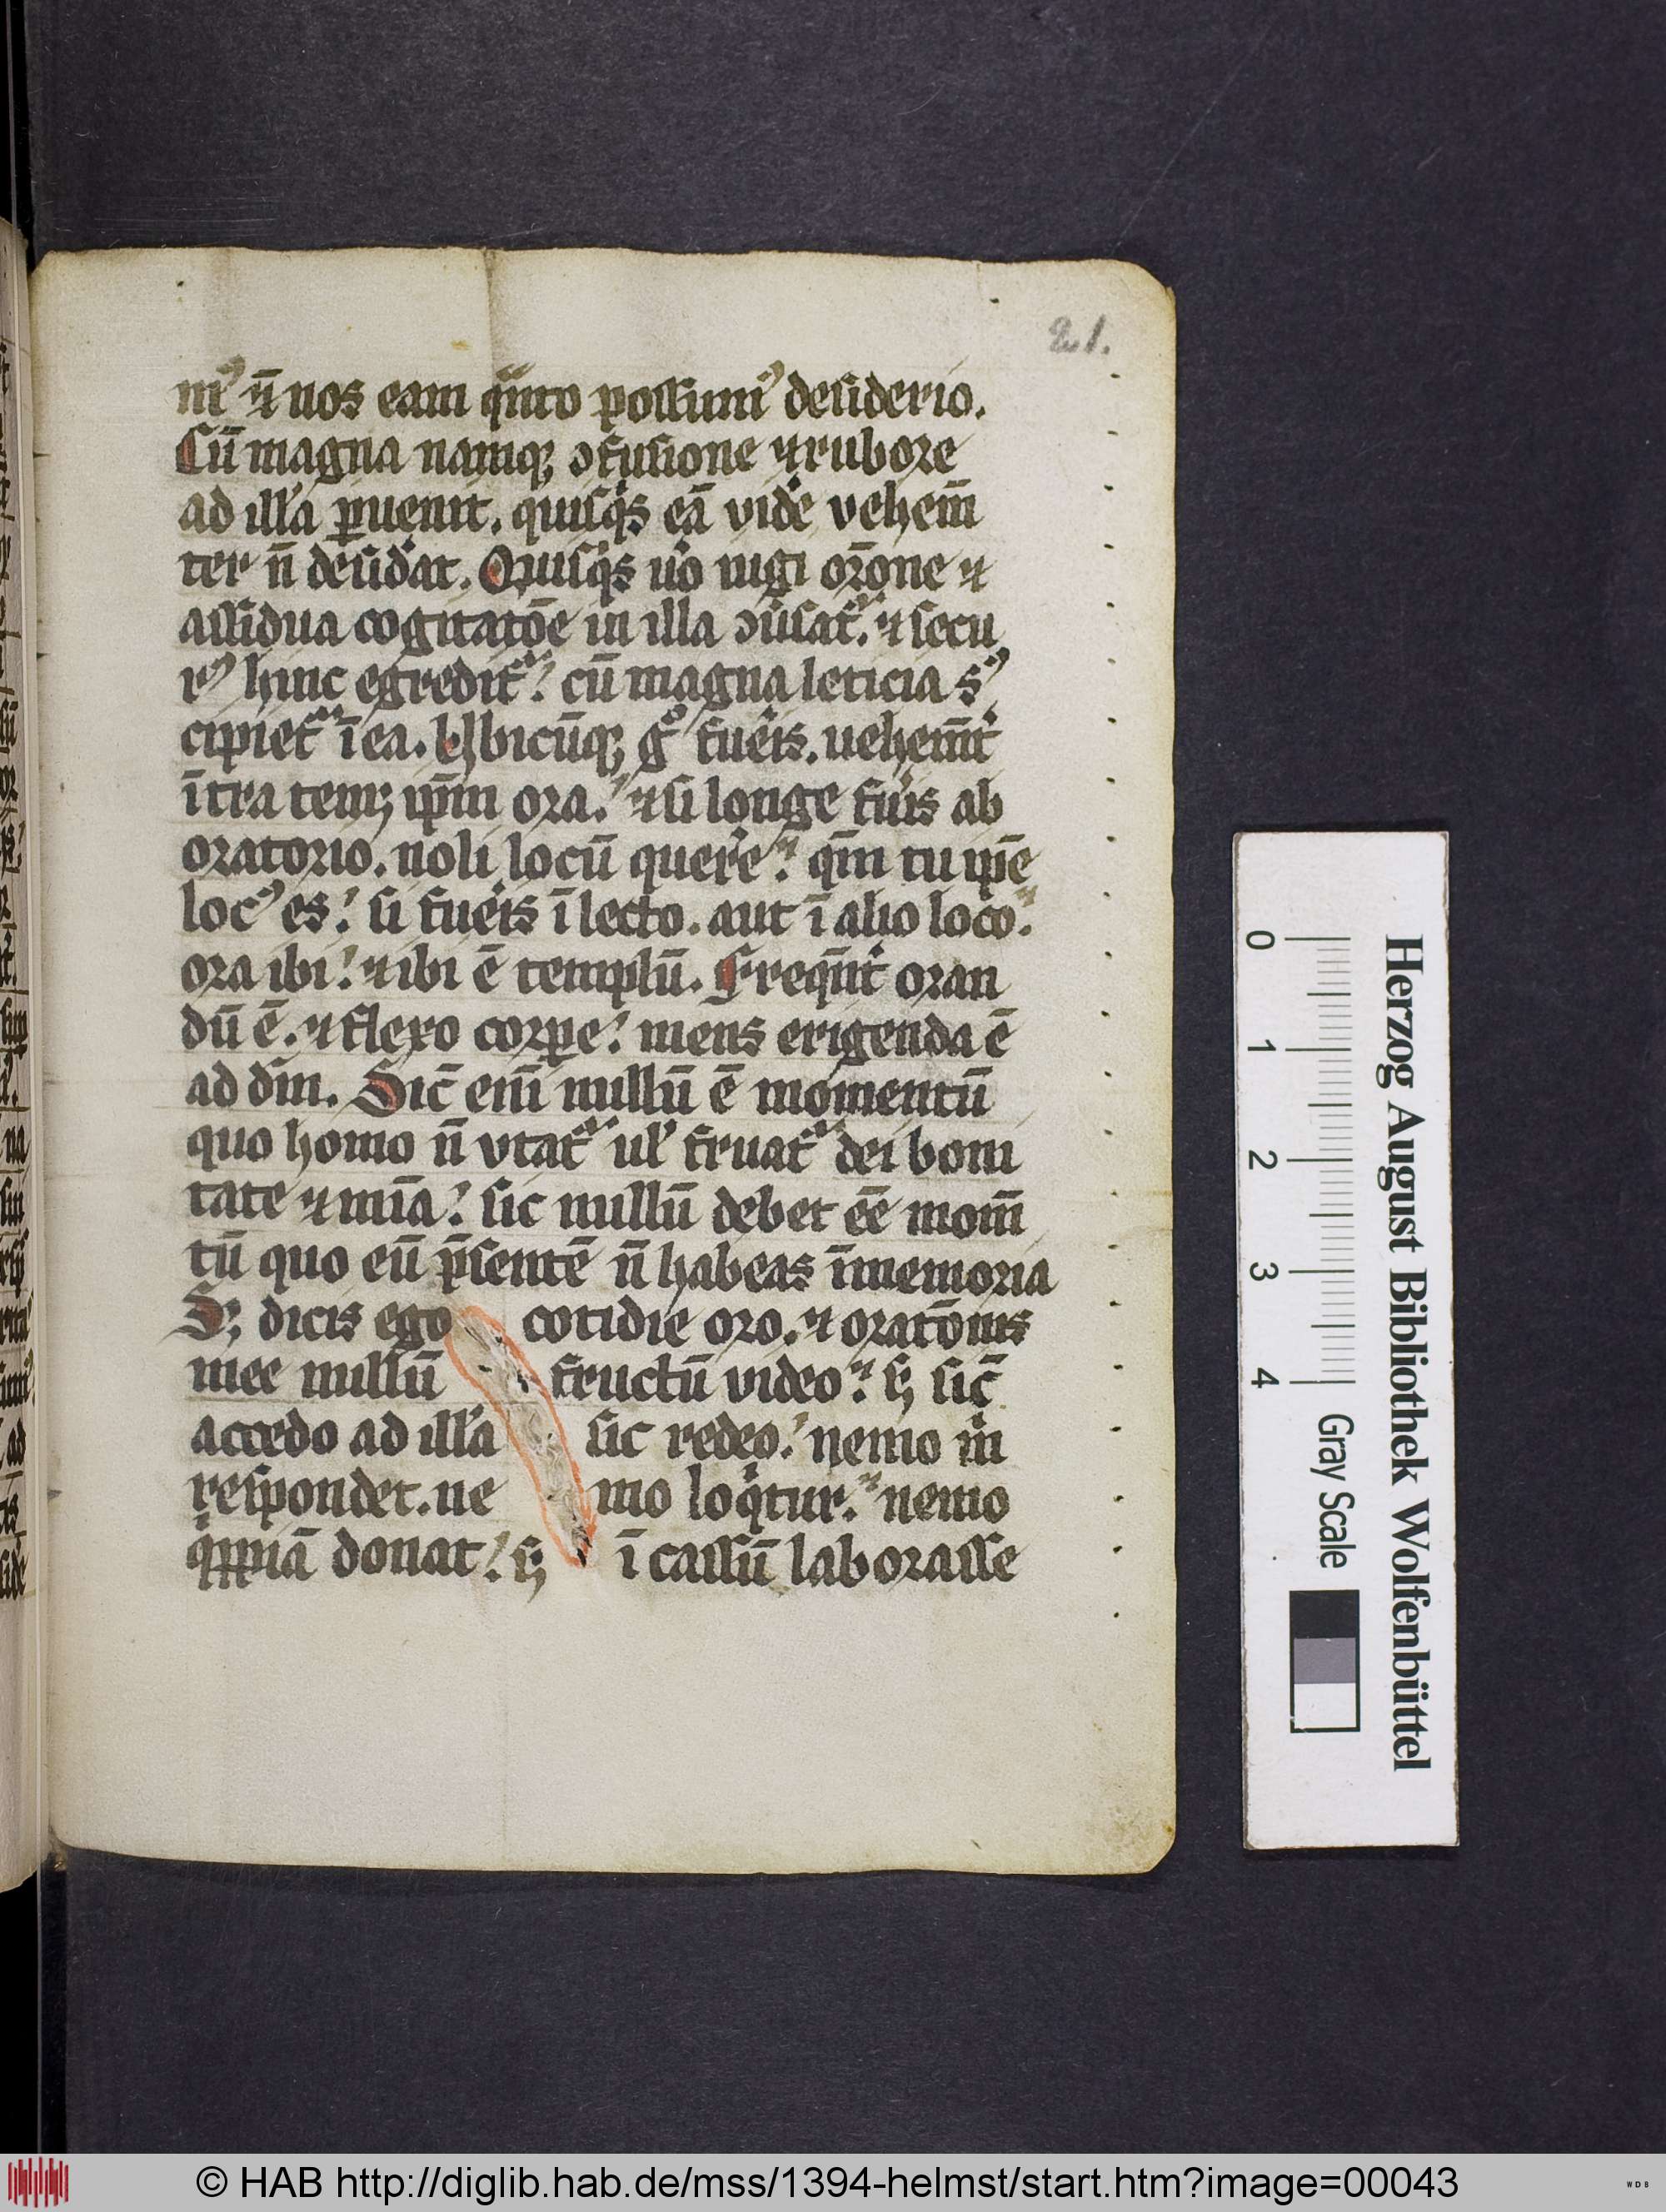 21.
mꝰ ⁊ nos eam qͣnto possumꝰ desiderio.
Cū magna namqꝫ ↄfusione ⁊ rubore
ad illā ꝑuenit. quisqͥs eā vidē vehem̄
ter n̄ desidāt. Quisqͥs uͦo iugi oꝛ̄one ⁊
assidua cogitatōe in illa ↄūsat᷑. ⁊ secu
rꝰ hinc egredit᷑. cū magna leticia sꝰ
cipiet᷑ ī ea. Ubicūqꝫ gͦ fueīs. uehem̄t͛
ītra temꝫ ip̄m oꝛa. ⁊ si longe fūis ab
oꝛatoꝛio. noli locū quere. qm̄ tu ip̄e
locꝰ es. si fueīs ī lecto. aut ī alio loco.
oꝛa ibi. ⁊ ibi ē templū. Freqn̄t͛ oꝛan
dū ē. ⁊ flexo coꝛꝑe. mens erigenda ē
ad dm̄. Sic̄ em̄ nullū ē momentū
quo homo n̄ vtat᷑ ul̓ fruat᷑ dei boni
tate ⁊ mīa. sic nullū debet ēe mom̄
tū quo eū p̄sentē n̄ habeas īmemoꝛia
Sꝫ dicis ego cotidie oꝛo. ⁊ oꝛatōnis
mee nullū fructū video. sꝫ sic̄
accedo ad illā sic redeo. nemo m̄
respondet. ne mo loqͥtur. nemo
qͥppiā donat. sꝫ ī cassū laboꝛasse
Herzog August Bibliothek Wolfenbüttel
0 1 2 3 4 Gray Scale
© HAB http://diglib.hab.de/mss/1394-helmst/start.htm?image=00043
WDB